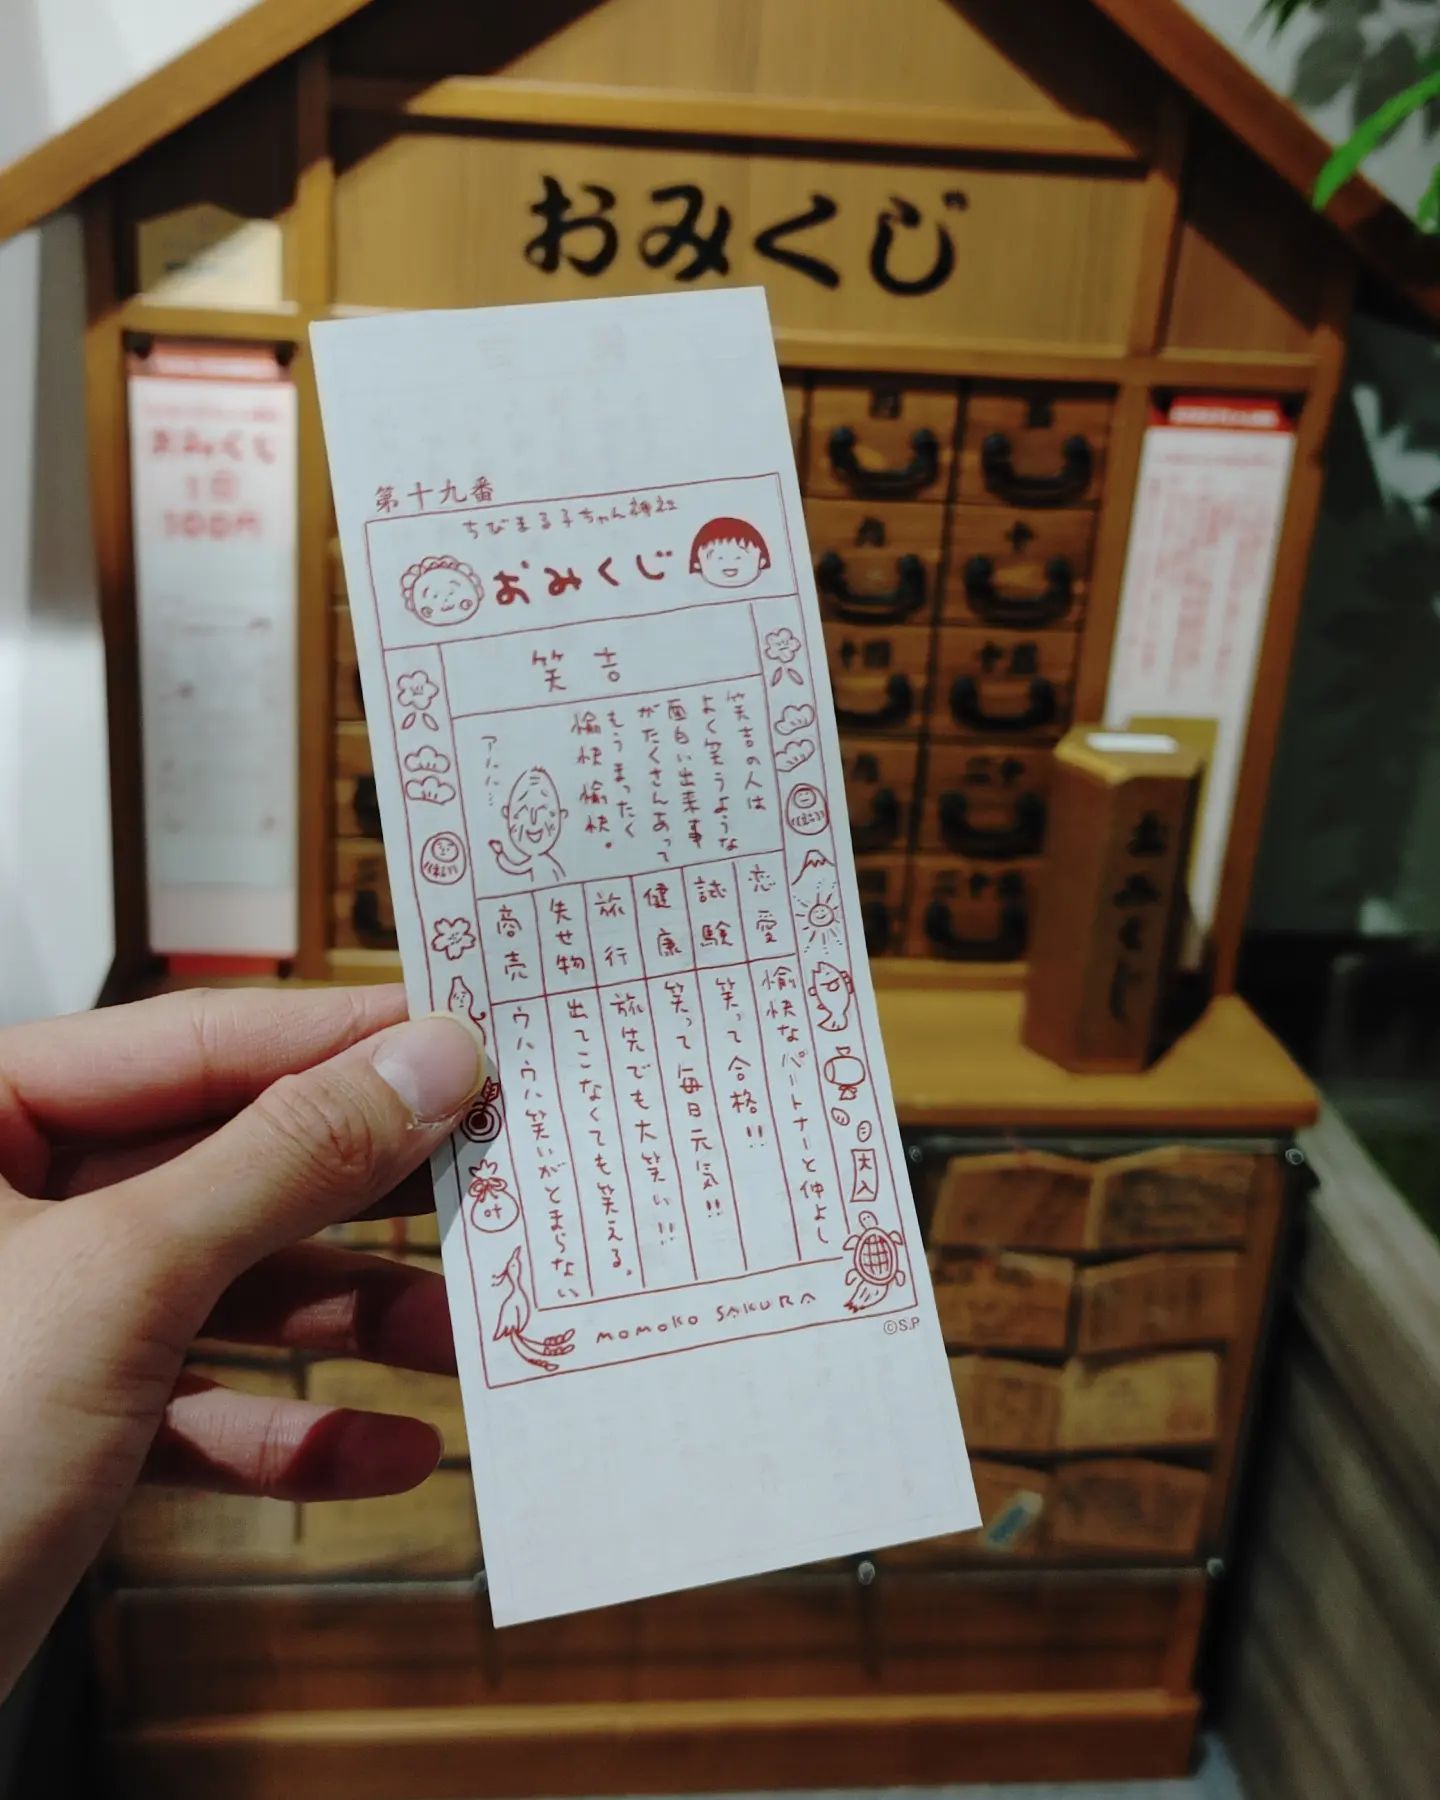 おみくじ
おみくじ
1回
100円
第十九番
ちびまる子ちゃん神社
おみくじ
笑吉
笑吉の人は
よく笑うような
面白い出来事
がたくさんあって
もうまったく
愉快愉快。
アハハ…
恋愛
愉快なパートナーと仲よし
試験
笑って合格!!
健康
笑って毎日元気!!
旅行
旅先でも大笑い!!
失せ物
出てこなくても笑える。
商売
ウハウハ笑いがとまらない
大入
叶
MOMOKO SAKURA
©S.P
十
十四
十五
二十
二十五
おみくじ